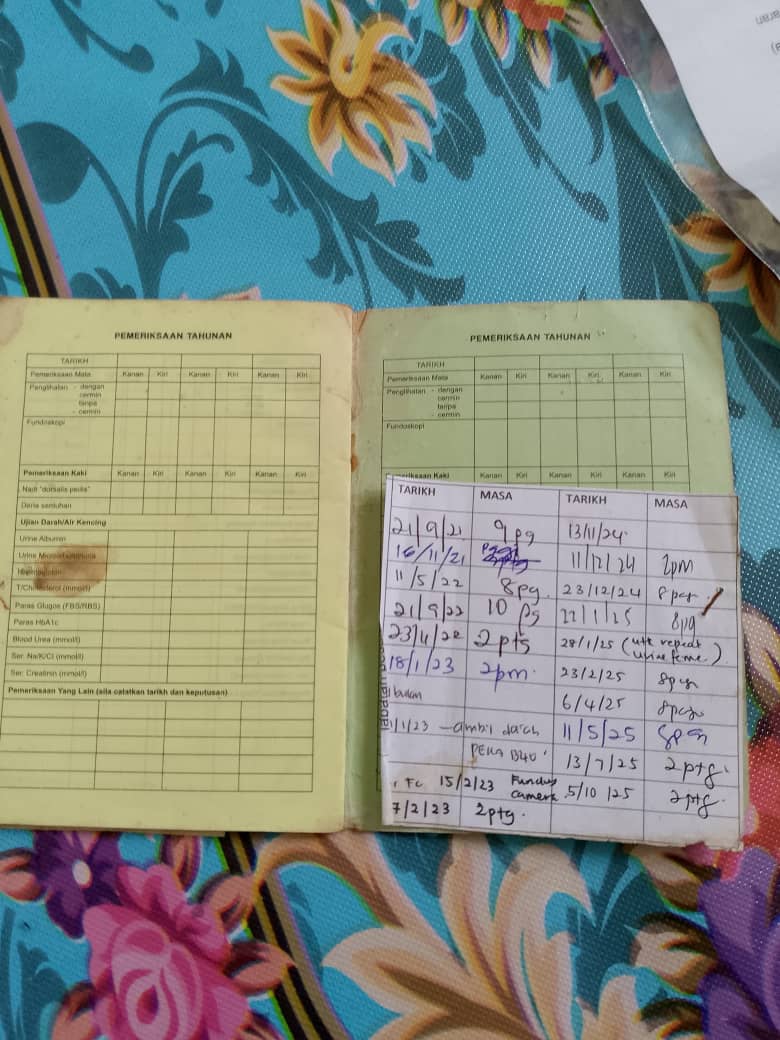 PEMERIKSAAN TAHUNAN
TARIKH
Pemeriksaan Mata Kanan Kiri Kanan Kiri Kanan Kiri
Penglihatan - dengan
cermin
tanpa
- cermin
Fundoskopi
Pemeriksaan Kaki Kanan Kiri Kanan Kiri Kanan Kiri
Nadi "dorsalis pedis"
Deria sentuhan
Ujian Darah/Air Kencing
Urine Albumin
Urine Microalbuminuria
T/Cholesterol (mmol/l)
Paras Glugos (FBS/RBS)
Paras HbA1c
Blood Urea (mmol/l)
Ser. Na/K/Cl (mmol/l)
Ser. Creatinin (mmol/l)
Pemeriksaan Yang Lain (sila catatkan tarikh dan keputusan)
PEMERIKSAAN TAHUNAN
TARIKH
Pemeriksaan Mata Kanan Kiri Kanan Kiri Kanan Kiri
Penglihatan - dengan
cermin
tanpa
- cermin
Fundoskopi
Pemeriksaan Kaki Kanan Kiri Kanan Kiri Kanan Kiri
TARIKH MASA TARIKH MASA
21/9/21 9pg 13/11/24
16/11/21 11/12/24 2pm
11/5/22 8pg 23/12/24
21/9/22 10 pg 22/1/25 8pg
2ptg 28/1/25 (utk repeat
urine feme)
18/1/23 2pm 23/2/25
bulan 6/4/25
1/1/23 - ambil darah 11/5/25
PEKA B40 13/7/25 2ptg
TC 15/2/23 Fundus
camera 5/10/25 2ptg
7/2/23 2ptg